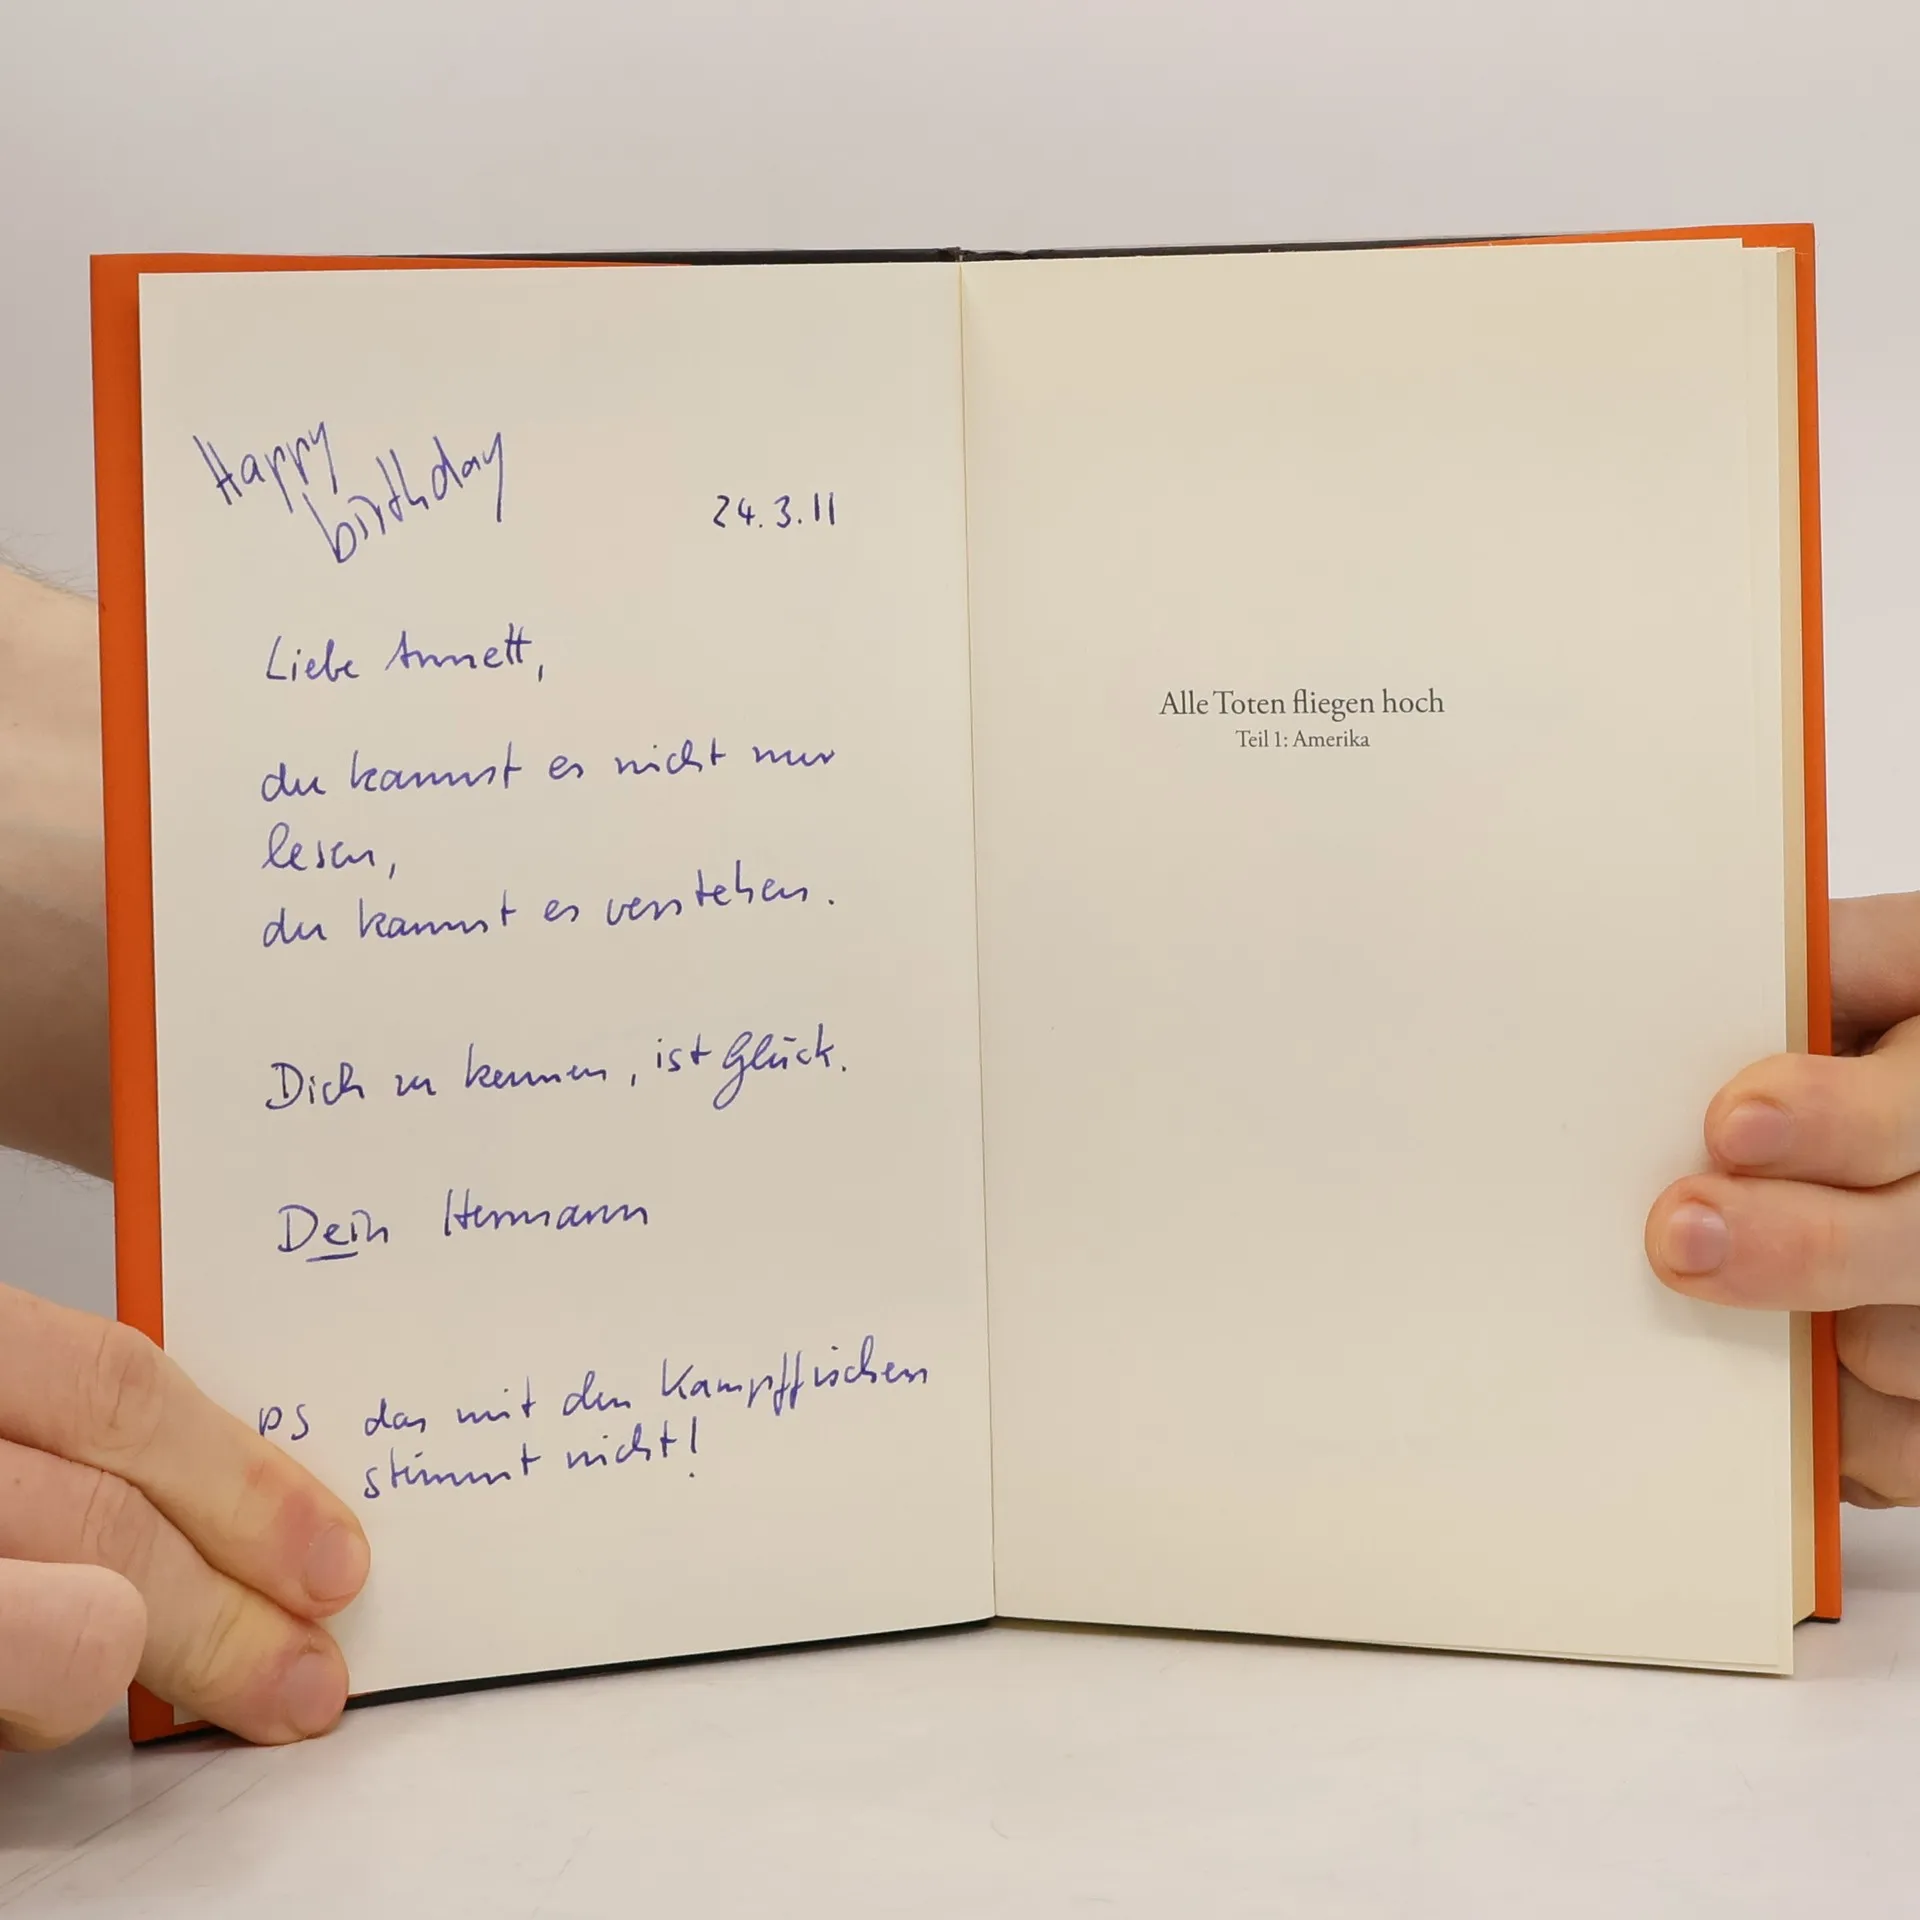 Happy
birthday
24.3.11
Liebe Annett,
du kannst es nicht nur
lesen,
du kannst es verstehen.
Dich zu kennen, ist Glück.
Dein Hermann
PS das mit den Kampffischen
stimmt nicht!
Alle Toten fliegen hoch
Teil 1: Amerika